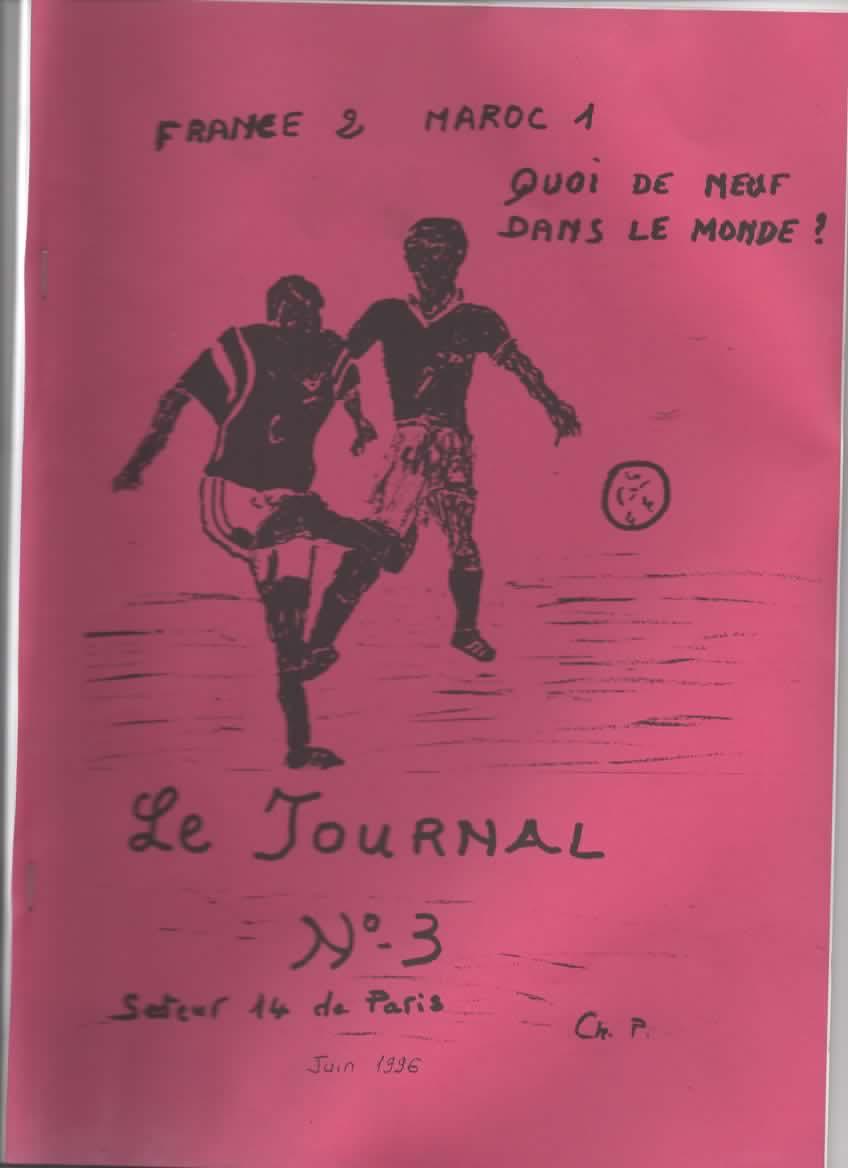 FRANCE 2 MAROC 1
QUOI DE NEUF
DANS LE MONDE ?
Le JOURNAL
N°-3
Secteur 14 de Paris
Ch. P.
Juin 1996